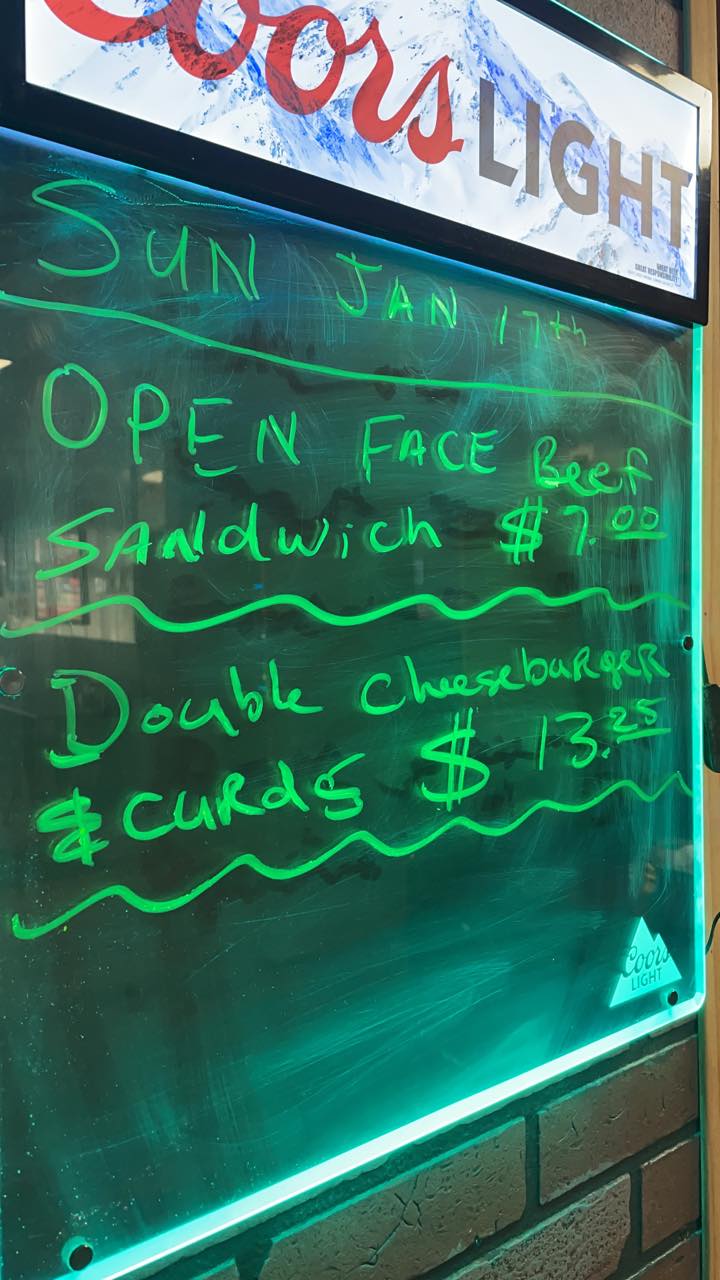 Coors LIGHT
SUN JAN 17th
OPEN FACE Beef
SANdwich $7.00
Double CheeseburgeR
& CURds $13.25
Coors
LIGHT